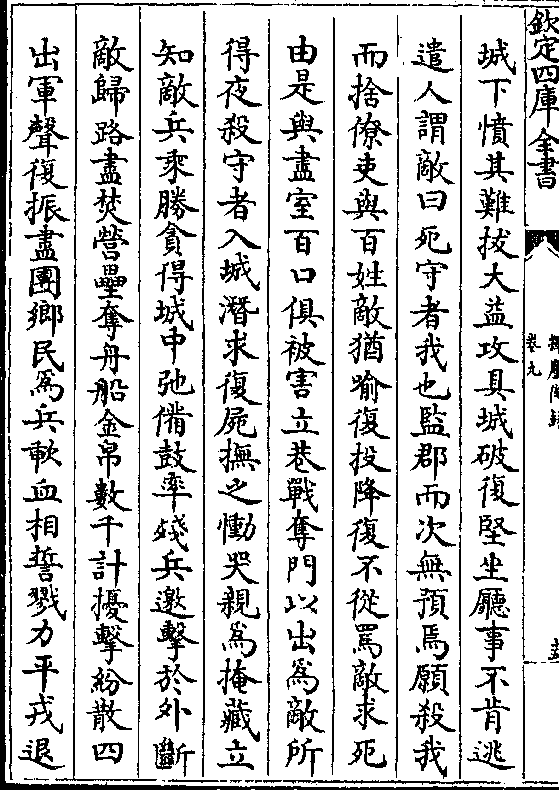 欽定四庫全書
卷九
城下憤其難拔大益攻具城破復堅坐廳事不肯逃
遣人謂敵曰死守者我也監郡而次無預焉願殺我
而捨僚吏與百姓敵猶喻復投降復不從罵敵求死
由是與盡室百口俱被害立巷戰奪門以出為敵所
得夜殺守者入城潛求復屍撫之慟哭親為掩藏立
知敵兵乘勝貪得城中弛備鼓率殘兵邀擊於外斷
敵歸路盡焚營壘奪舟船金帛數千計擾擊紛散四
出軍聲復振盡團鄉民為兵歃血相誓戮力平戎退